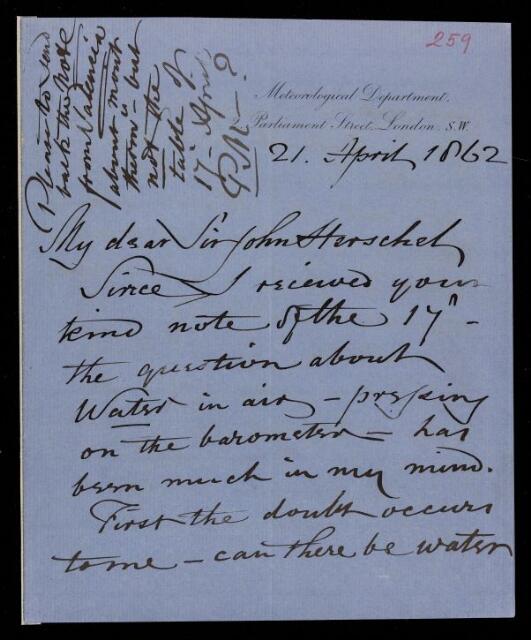 259
Meteorological Department.
Parliament Street, London. S.W.
21. April 1862
Please to send
back the note
from Valencia
about mont
therm's - but
not the
table of
17 April
My dear Sir John Herschel
Since I received your
kind note of the 17th -
the question about
Water in air - pressing
on the barometer - has
been much in my mind.
First the doubt occurs
to me - can there be water